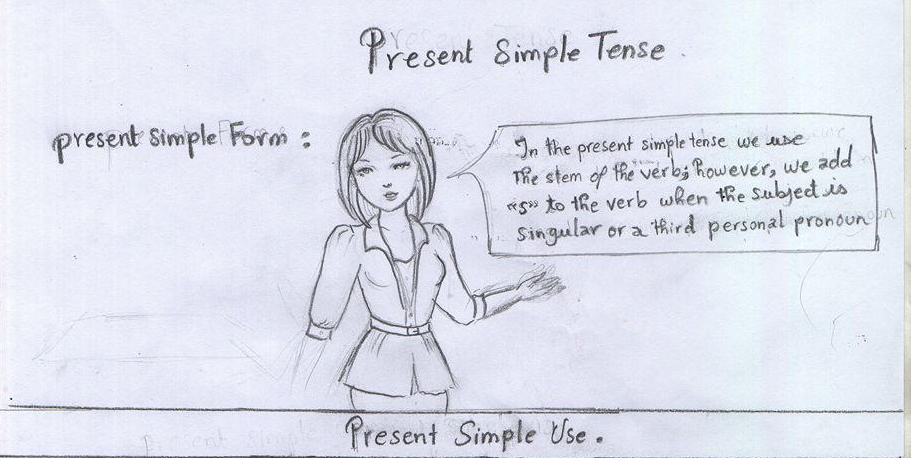 Present Simple Tense.
present simple Form :
In the present simple tense we use
The stem of the verb; however, we add
"s" to the verb when the subject is
singular or a third personal pronoun
Present Simple Use.